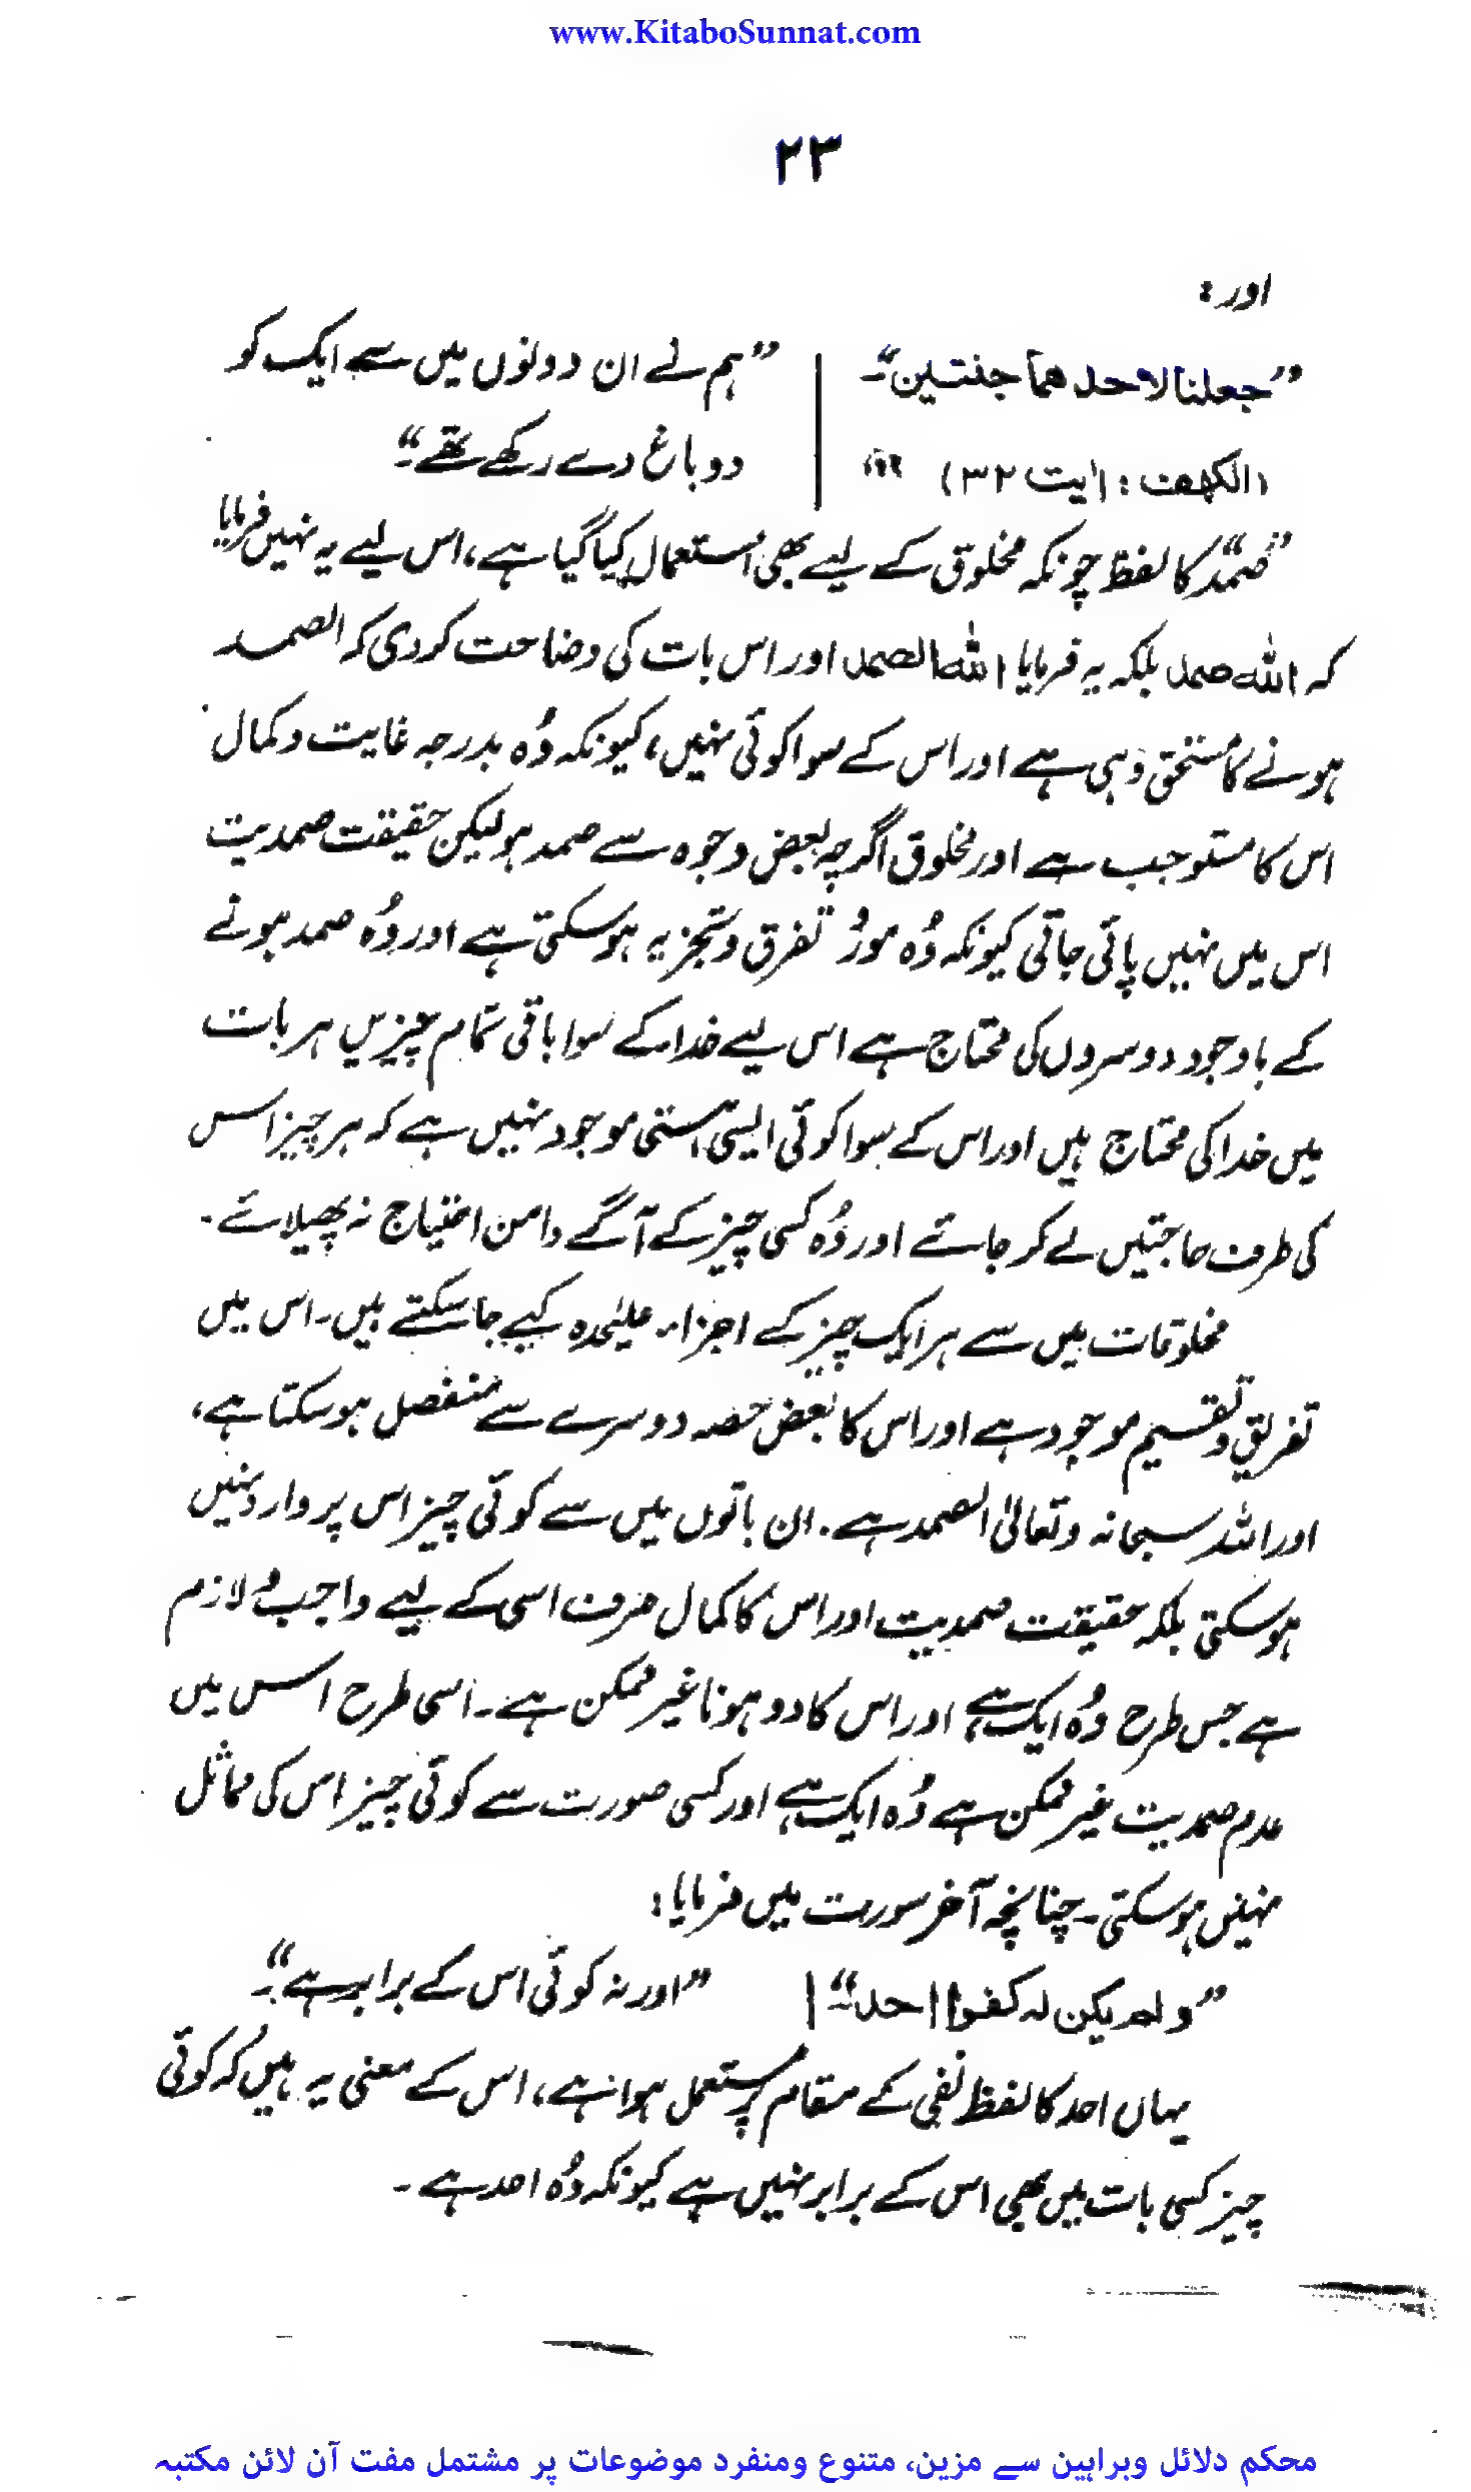 www.KitaboSunnat.com
۲۳
اور :
”جعلنا لاحدهما جنتین“۔
(الکهف : اٰیت ۳۲)
”ہم نے ان دونوں میں سے ایک کو
دو باغ دے رکھے تھے“۔
”صمد“ کا لفظ چونکہ مخلوق کے لیے بھی استعمال کیا گیا ہے، اس لیے یہ نہیں فرمایا
کہ اللہ صمد بلکہ یہ فرمایا اللہ الصمد اور اس بات کی وضاحت کر دی کہ الصمد
ہونے کا مستحق وہی ہے اور اس کے سوا کوئی نہیں، کیونکہ وُہ بدرجہ غایت و کمال
اس کا مستوجب ہے اور مخلوق اگرچہ بعض وجوہ سے صمد ہو لیکن حقیقت صمدیت
اس میں نہیں پائی جاتی کیونکہ وُہ مورد تفرق و تجزیہ ہو سکتی ہے اور وُہ صمد ہونے
کے باوجود دوسروں کی محتاج ہے اس لیے خدا کے سوا باقی تمام چیزیں ہر بات
میں خدا کی محتاج ہیں اور اس کے سوا کوئی ایسی ہستی موجود نہیں ہے کہ ہر چیز اس
کی طرف حاجتیں لے کر جائے اور وُہ کسی چیز کے آگے دامن احتیاج نہ پھیلائے۔
مخلوقات میں سے ہر ایک چیز کے اجزاء علیٰحدہ کیے جا سکتے ہیں۔ اس میں
تفریق و تقسیم موجود ہے اور اس کا بعض حصہ دوسرے سے منفصل ہو سکتا ہے،
اور اللہ سبحانہ وتعالیٰ الصمد ہے۔ ان باتوں میں سے کوئی چیز اس پر وارد نہیں
ہو سکتی بلکہ حقیقت صمدیت اور اس کا کمال صرف اسی کے لیے واجب و لازم
ہے جس طرح وُہ ایک ہے اور اس کا دو ہونا غیر ممکن ہے۔ اسی طرح اس میں
عدم صمدیت غیر ممکن ہے وُہ ایک ہے اور کسی صورت سے کوئی چیز اس کی مماثل
نہیں ہو سکتی۔ چنانچہ آخر سورت میں فرمایا :
”ولم یکن لہ کفوا احد“۔
”اور نہ کوئی اس کے برابر ہے“۔
یہاں احد کا لفظ نفی کے مقام پر مستعمل ہوا ہے، اس کے معنی یہ ہیں کہ کوئی
چیز کسی بات میں بھی اس کے برابر نہیں ہے کیونکہ وُہ احد ہے۔
محکم دلائل وبراہین سے مزین، متنوع ومنفرد موضوعات پر مشتمل مفت آن لائن مکتبہ